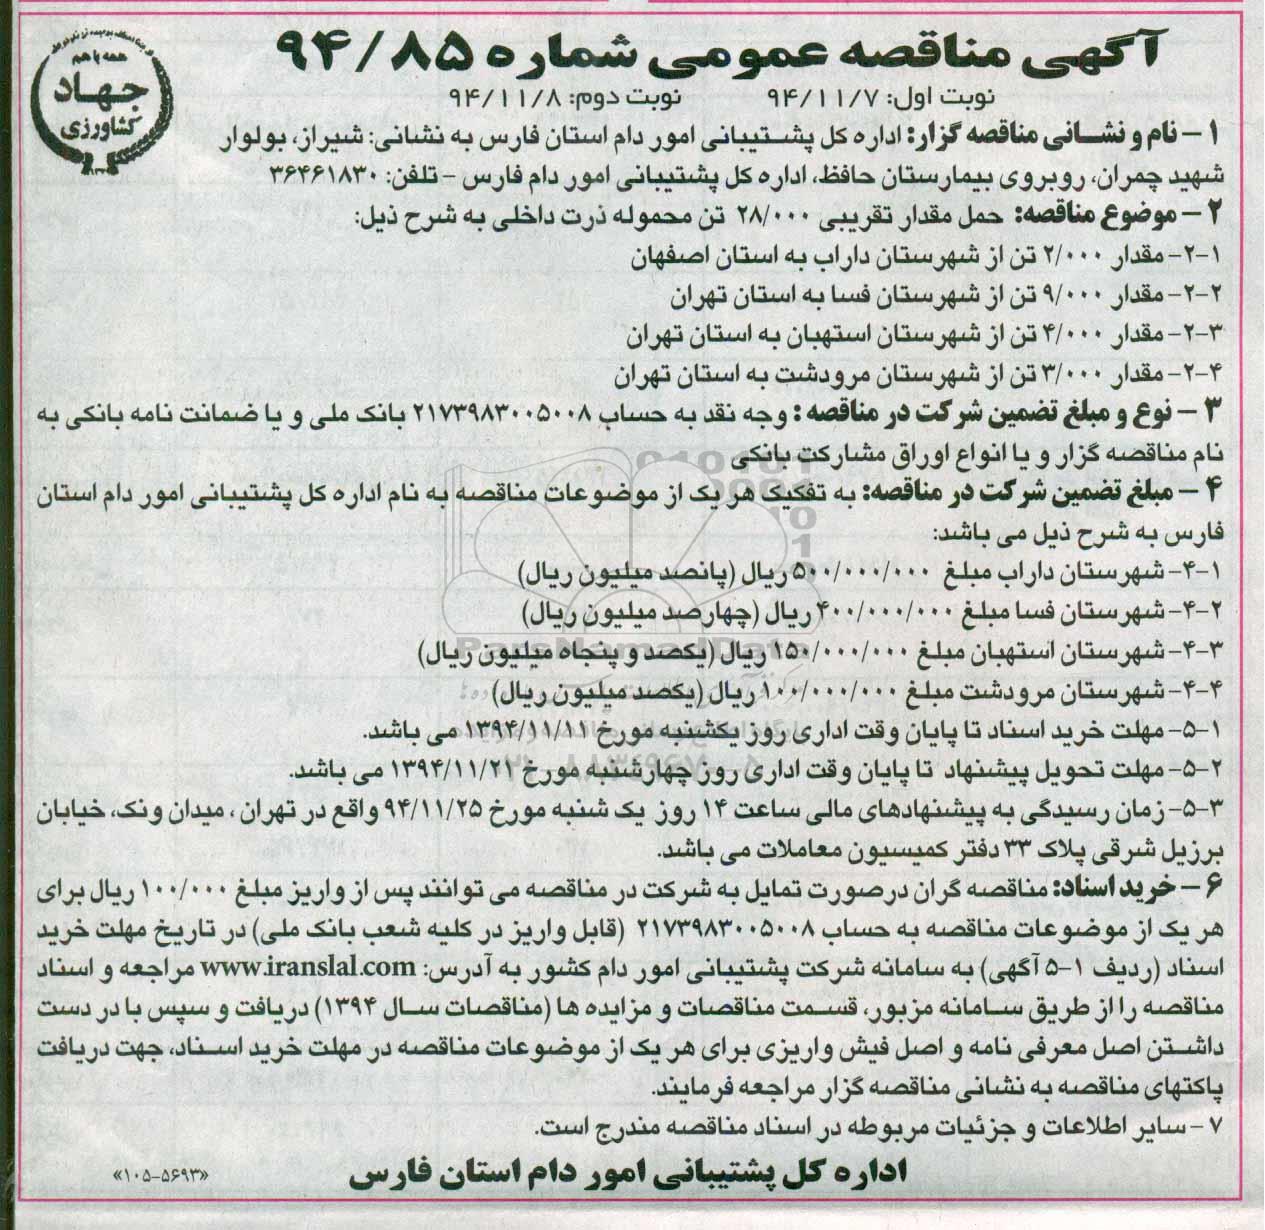 آگهی مناقصه عمومی شماره ۹۴/۸۵
همه با هم
جهاد
کشاورزی
نوبت اول: ۹۴/۱۱/۷ نوبت دوم: ۹۴/۱۱/۸
۱ – نام و نشانی مناقصه گزار: اداره کل پشتیبانی امور دام استان فارس به نشانی: شیراز، بولوار
شهید چمران، روبروی بیمارستان حافظ، اداره کل پشتیبانی امور دام فارس – تلفن: ۳۶۴۶۱۸۳۰
۲ – موضوع مناقصه: حمل مقدار تقریبی ۲۸/۰۰۰ تن محموله ذرت داخلی به شرح ذیل:
۲-۱- مقدار ۲/۰۰۰ تن از شهرستان داراب به استان اصفهان
۲-۲- مقدار ۹/۰۰۰ تن از شهرستان فسا به استان تهران
۲-۳- مقدار ۴/۰۰۰ تن از شهرستان استهبان به استان تهران
۲-۴- مقدار ۳/۰۰۰ تن از شهرستان مرودشت به استان تهران
۳ – نوع و مبلغ تضمین شرکت در مناقصه : وجه نقد به حساب ۲۱۷۳۹۸۳۰۰۵۰۰۸ بانک ملی و یا ضمانت نامه بانکی به
نام مناقصه گزار و یا انواع اوراق مشارکت بانکی
۴ – مبلغ تضمین شرکت در مناقصه: به تفکیک هر یک از موضوعات مناقصه به نام اداره کل پشتیبانی امور دام استان
فارس به شرح ذیل می باشد:
۴-۱- شهرستان داراب مبلغ ۵۰۰/۰۰۰/۰۰۰ ریال (پانصد میلیون ریال)
۴-۲- شهرستان فسا مبلغ ۴۰۰/۰۰۰/۰۰۰ ریال (چهارصد میلیون ریال)
۴-۳- شهرستان استهبان مبلغ ۱۵۰/۰۰۰/۰۰۰ ریال (یکصد و پنجاه میلیون ریال)
۴-۴- شهرستان مرودشت مبلغ ۱۰۰/۰۰۰/۰۰۰ ریال (یکصد میلیون ریال)
۵-۱- مهلت خرید اسناد تا پایان وقت اداری روز یکشنبه مورخ ۱۳۹۴/۱۱/۱۱ می باشد.
۵-۲- مهلت تحویل پیشنهاد تا پایان وقت اداری روز چهارشنبه مورخ ۱۳۹۴/۱۱/۲۱ می باشد.
۵-۳- زمان رسیدگی به پیشنهادهای مالی ساعت ۱۴ روز یک شنبه مورخ ۹۴/۱۱/۲۵ واقع در تهران ، میدان ونک، خیابان
برزیل شرقی پلاک ۳۳ دفتر کمیسیون معاملات می باشد.
۶ – خرید اسناد: مناقصه گران درصورت تمایل به شرکت در مناقصه می توانند پس از واریز مبلغ ۱۰۰/۰۰۰ ریال برای
هر یک از موضوعات مناقصه به حساب ۲۱۷۳۹۸۳۰۰۵۰۰۸ (قابل واریز در کلیه شعب بانک ملی) در تاریخ مهلت خرید
اسناد (ردیف ۱-۵ آگهی) به سامانه شرکت پشتیبانی امور دام کشور به آدرس: www.iranslal.com مراجعه و اسناد
مناقصه را از طریق سامانه مزبور، قسمت مناقصات و مزایده ها (مناقصات سال ۱۳۹۴) دریافت و سپس با در دست
داشتن اصل معرفی نامه و اصل فیش واریزی برای هر یک از موضوعات مناقصه در مهلت خرید اسناد، جهت دریافت
پاکتهای مناقصه به نشانی مناقصه گزار مراجعه فرمایند.
۷ – سایر اطلاعات و جزئیات مربوطه در اسناد مناقصه مندرج است.
اداره کل پشتیبانی امور دام استان فارس
«۱۰۵-۵۶۹۳»
ParsNamadData